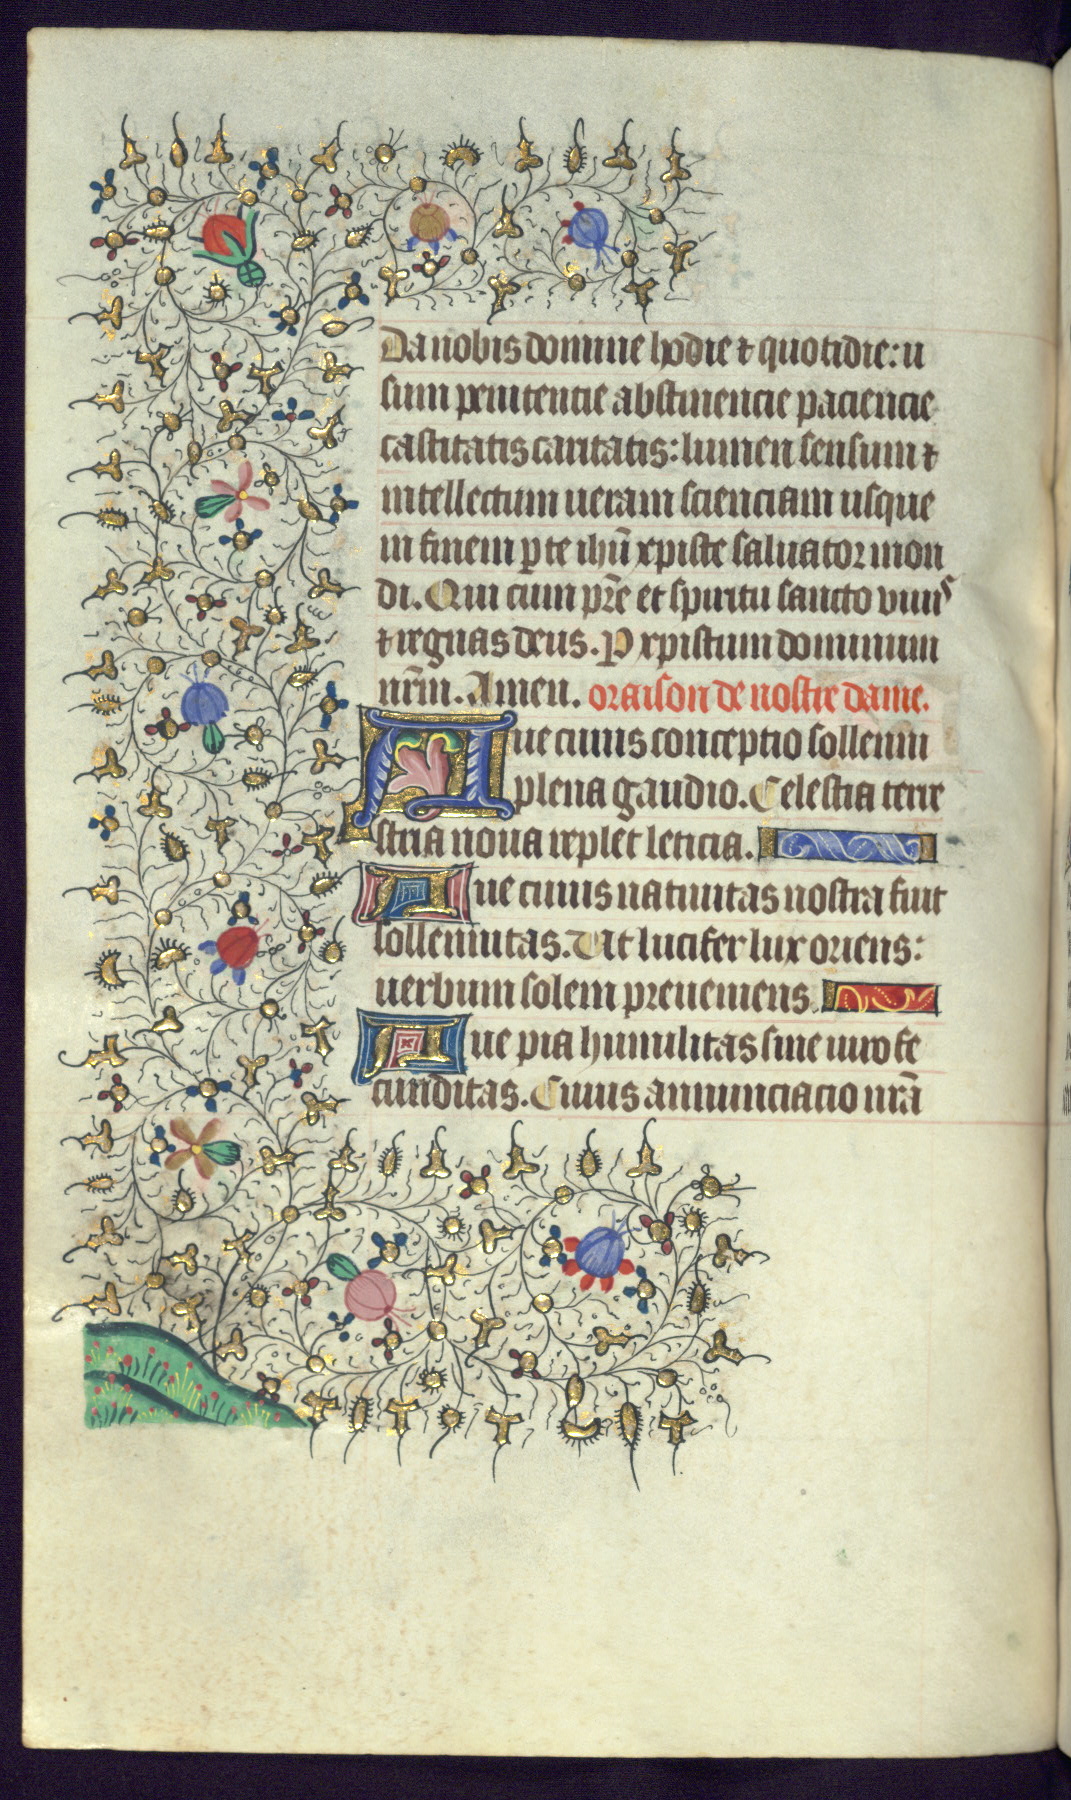 Da nobis domine hodie ⁊ quotidie: u
sum penitentie abstinencie paciencie
castitatis caritatis: lumen sensum ⁊
intellectum ueram scienciam usque
in finem p te ihū xpiste saluator mon
di. Qui cum pr̄e et spiritu sancto viuis
⁊ regnas deus. P xpistum dominum
nr̄m. Amen. oraison de nostre dame.
Aue cuius conceptio sollenni
plena gaudio. Celestia terre
stria noua replet leticia.
Aue cuius natiuitas nostra fuit
sollennitas. Ut lucifer lux oriens:
uerbum solem preueniens.
Aue pia humilitas sine uiro fe
cunditas. Cuius annunciacio nrā